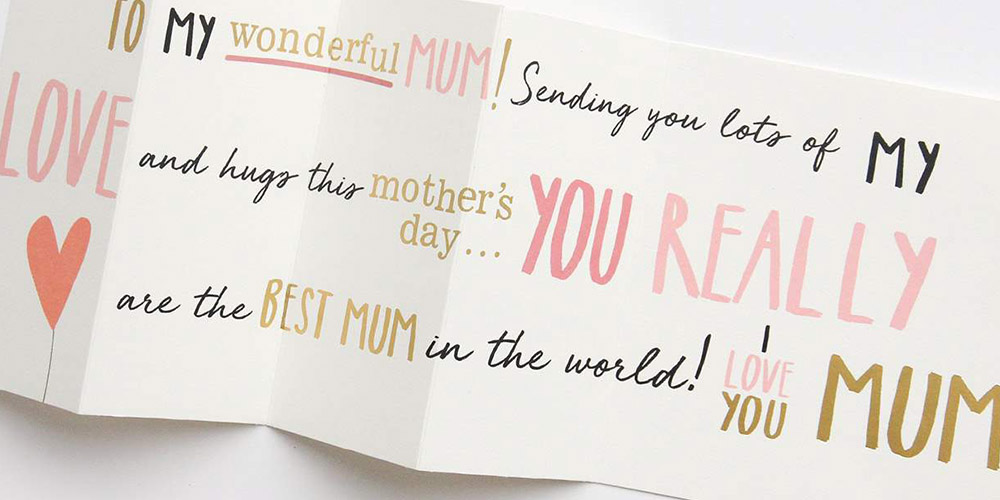 TO MY wonderful MUM! Sending you lots of MY
LOVE and hugs this mother's day... YOU REALLY
are the BEST MUM in the world! I LOVE YOU MUM